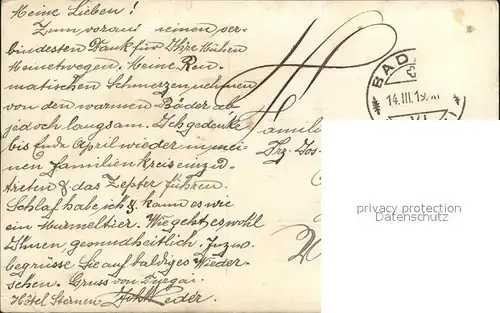 Meine Lieben!
Zum voraus meinen ver-
bindesten Dank für Ihre Mühen
Meinetwegen. Meine Reu-
matischen Schmerzen nehmen
von den warmen Bäder ab
jedoch langsam. Ich gedenke
bis Ende April wieder in mei-
nen Familienkreis einzu-
treten & das Zepter führen.
Schlaf habe ich & kann es wie
ein Murmeltier. Wie geht es wohl
Ihnen gesundheitlich,
begrüsse Sie auf baldiges Wieder-
sehen. Gruss von
Hôtel Sternen
BAD
14.III.19
Famili
Frz. Jos.
privacy protection
Datenschutz